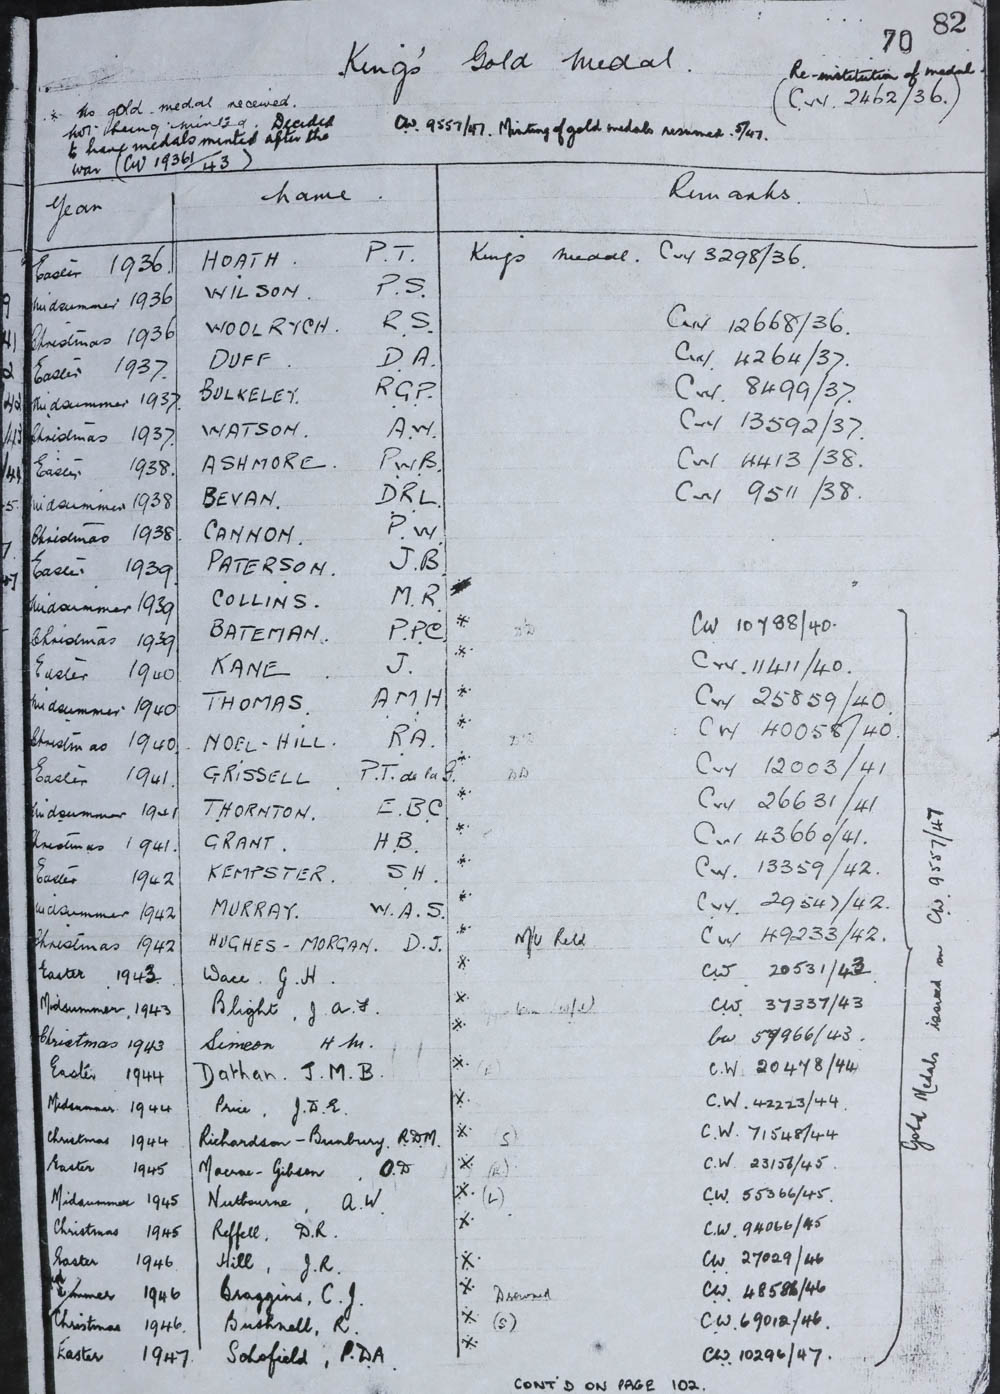 82
70
King's Gold Medal.
Re-institution of medal.
(CW. 2462/36.)
* No gold medal received.
not being minted. Decided
to have medals minted after the
war (CW 19361/43)
CW. 9557/47. Minting of gold medals resumed. 5/47.
Year Name. Remarks.
Easter 1936. HOATH. P.T. King's Medal. CW 3298/36.
Midsummer 1936 WILSON. P.S.
Christmas 1936 WOOLRYCH. R.S. CW 12668/36.
Easter 1937. DUFF. D.A. CW. 4264/37.
Midsummer 1937. BULKELEY. RGP. CW. 8499/37.
Christmas 1937. WATSON. A.W. CW 13592/37.
Easter 1938. ASHMORE. PWB. CW 4413/38.
Midsummer 1938 BEVAN. DRL. CW 9511/38.
Christmas 1938. CANNON. P.W.
Easter 1939. PATERSON. J.B.
Midsummer 1939 COLLINS. M.R.
Christmas 1939 BATEMAN. P.P.C. * CW 10788/40.
Easter 1940 KANE J. * CW. 11411/40.
Midsummer 1940 THOMAS. A.M.H * CW 25859/40.
Christmas 1940. NOEL-HILL. R.A. * CW 40058/40.
Easter 1941. GRISSELL P.T. de la G. * DD CW 12003/41
Midsummer 1941 THORNTON. E.B.C. * CW 26631/41
Christmas 1941. GRANT. H.B. * CW 43660/41.
Easter 1942 KEMPSTER. S.H. * CW. 13359/42.
Midsummer 1942 MURRAY. W.A.S. * CW. 29547/42.
Christmas 1942 HUGHES-MORGAN. D.J. * N/V Reld CW 49233/42.
Easter 1943. Wace. G.H. * CW 20531/43
Midsummer, 1943 Blight, J.A.F. * CW. 37337/43
Christmas 1943 Simeon H M. * CW 59966/43.
Easter 1944 Dathan. J.M.B. * C.W. 20478/44
Midsummer 1944 Price, J.D.E. * C.W. 42223/44.
Christmas 1944 Richardson-Bunbury. R.D.M. * (S) C.W. 71548/44
Easter 1945 Macrae-Gibson O.D * C.W. 23156/45.
Midsummer 1945 Nutbourne, A.W. * (L) CW. 55366/45.
Christmas 1945 Reffell, D.R. * C.W. 94066/45
Easter 1946 Hill, J.R. * CW. 27029/46
Summer 1946 Braggins, C.J. * Drowned CW. 48586/46
Christmas 1946. Bushnell, R. * (S) C.W. 69012/46.
Easter 1947. Schofield, P.D.A. * CW. 10296/47.
Gold Medals issued on CW. 9557/47
CONT'D ON PAGE 102.